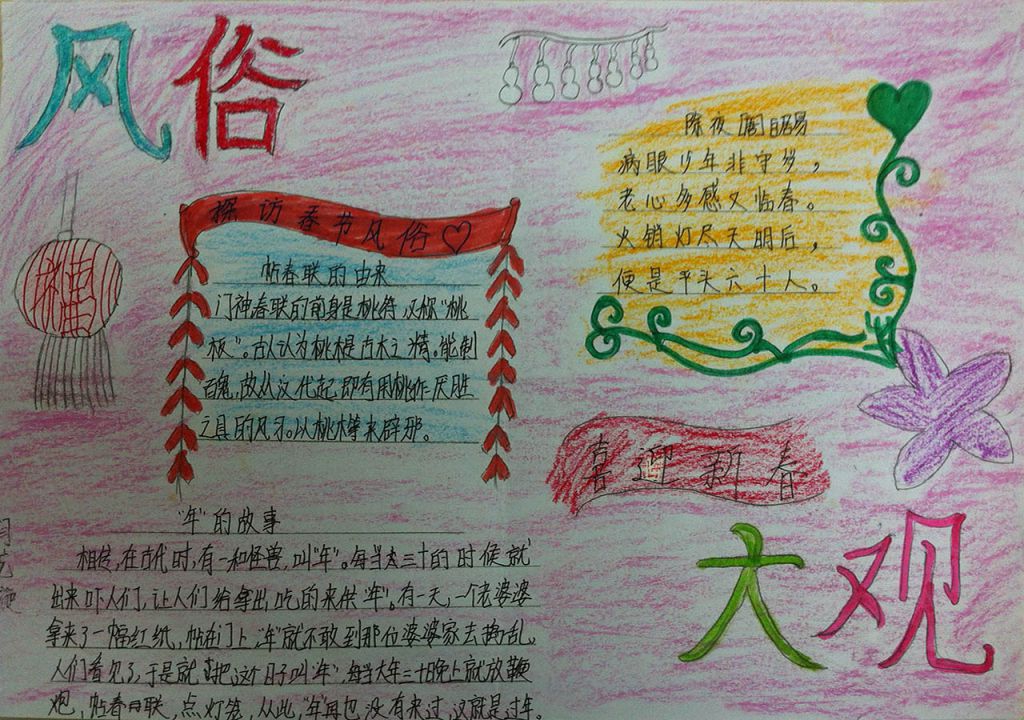 风俗
探访春节风俗
帖春联的由来
门神春联的前身是桃符,又称“桃
板”。古人认为桃木是百木之精。能制
百鬼,故从汉代起即有用桃作厌胜
之具的风习。以桃木等来辟邪。
除夜 白居易
病眼少年非守岁,
老心多感又临春。
火销灯尽天明后,
便是平头六十人。
喜迎新春
大观
“年”的故事
相传,在古代时,有一种怪兽,叫“年”。每当大三十的时候就
出来吓人们,让人们给拿出吃的来供“年”。有一天,一个老婆婆
拿来了一幅红纸,帖在门上“年”就不敢到那位婆婆家去捣乱。
人们看见了,于是就把这个日子叫“年”,每当大年三十晚上就放鞭
炮,帖春联,点灯笼,从此,“年”再也没有来过,这就是过年。